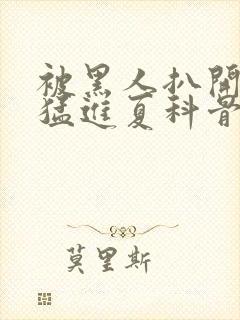 被黑人扒開
猛進夏科普
莫里斯